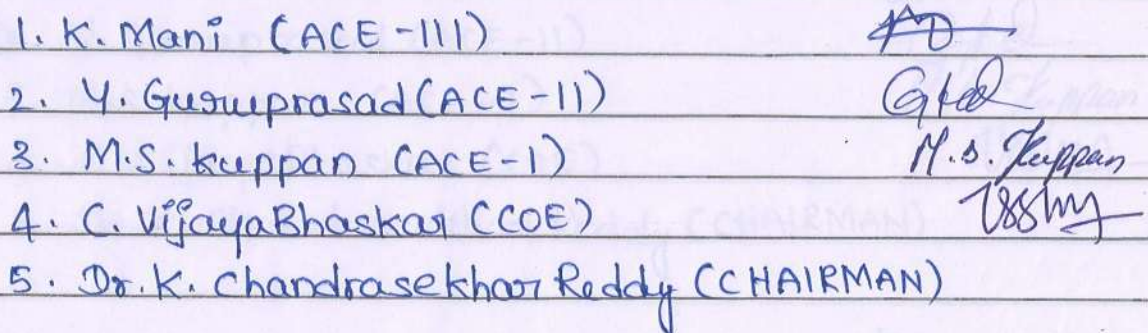 1. K. Mani (ACE-III)
2. Y. Guruprasad (ACE-II)
3. M.S. Kuppan (ACE-I) M.S. Kuppan
4. C. VijayaBhaskar (COE)
5. Dr. K. Chandrasekhar Reddy (CHAIRMAN)